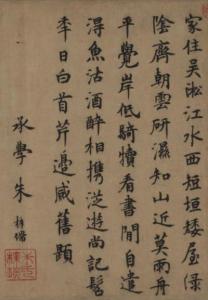 家住吳淞江水西短垣矮屋綠
陰齊朝雲研濕知山近莫雨舟
平覺岸低騎犢看書閒自遣
得魚沽酒醉相携茫遊尚記髫
季日白首芹邊感舊題
承學朱